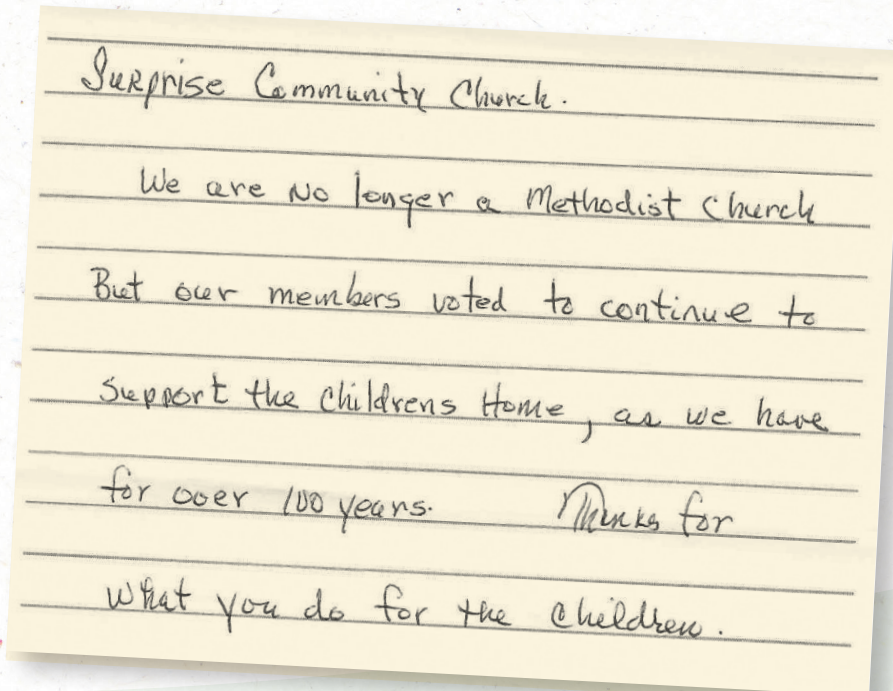 Surprise Community Church.
We are no longer a Methodist Church
But our members voted to continue to
support the childrens Home, as we have
for over 100 years. Thanks for
what you do for the children.